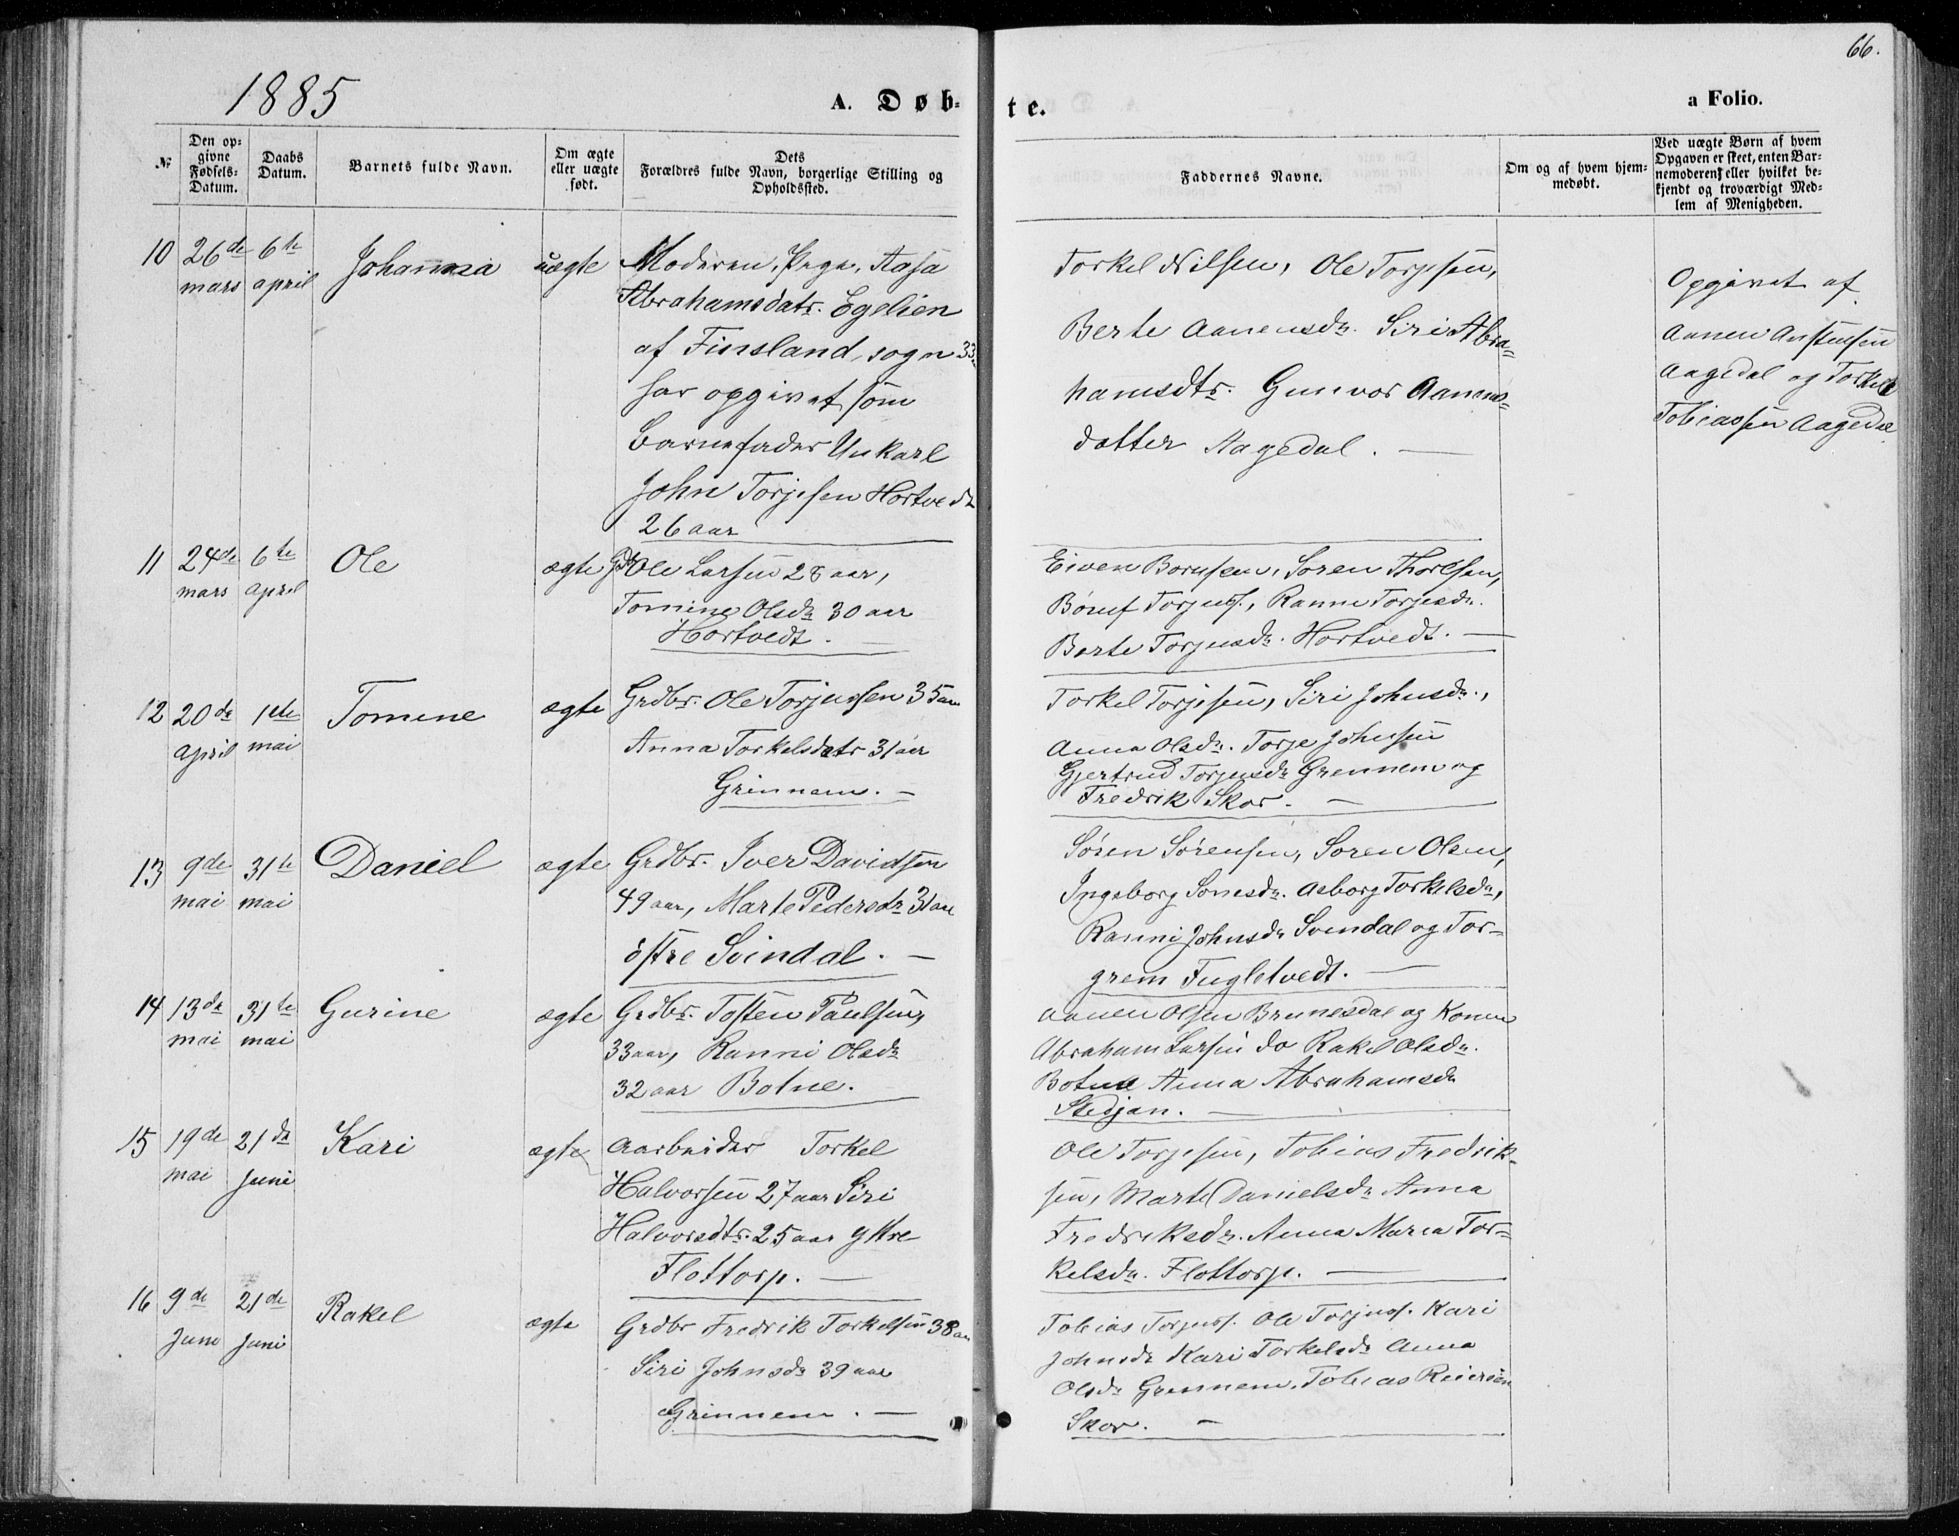 1885
A. Døb-
te.
a Folio.
66.
№
Den op-
givne
Fødsels-
Datum.
Daabs
Datum.
Barnets fulde Navn.
Om ægte
eller uægte
født.
Dets
Forældres fulde Navn, borgerlige Stilling og
Opholdssted.
Faddernes Navne.
Om og af hvem hjem-
medøbt.
Ved uægte Børn af hvem
Opgaven er skeet, enten Bar-
nemoderen eller hvilket be-
kjendt og troværdigt Med-
lem af Menigheden.
10
26de
mars
6te
april
Johanna
uægte
Moderen, Pige, Aasa
Abrahamsdatr. Egelien
af Finsland sogn 33
har opgivet som
Barnefader Unkarl
John Torjesen Hortvedt
26 aar
Torkel Nilsen, Ole Torjesen,
Berte Aanensdr. Siri Abra-
hamsdtr. Gunvor Aanens-
datter Aagedal. —
Opgivet af
Aanen Anstensen
Aagedal og Torkel
Tobiassen Aagedal
11
24de
mars
6te
april
Ole
ægte
Ole Larsen 28 aar,
Tomine Olsdr 30 aar
Hortvedt. —
Eiven Borufsen, Søren Thorlsen,
Børuf Torjusf., Ranni Torjesdr.
Berte Torjusdr. Hortvedt. —
12
20de
april
1ste
mai
Tomine
ægte
Grdbr. Ole Torjussen 35 aar
Anna Torkelsdatr 31 aar
Grinnem. —
Torkel Torjesen, Siri Johnsdr.,
Anna Olsdr. Torje Johnsen
Gjertrud Torjusdr Grennem og
Fredrik Skor. —
13
9de
mai
31te
mai
Daniel
ægte
Grdbr. Iver Davidsen
49 aar, Marte Pedersdr 31 aar
østre Svindal. —
Søren Sørensen, Soren Olsen,
Ingeborg Sørnesdr. Asborg Torkelsdr,
Ranni Johnsdr Svindal og Tor-
grem Fugletvedt. —
14
13de
mai
31te
mai
Gurine
ægte
Grdbr. Tosten Paulsen,
33 aar, Ranni Olsdr
32 aar Botne. —
Aanen Olsen Brunesdal og Kone
Abraham Larsen do Rakel Olsdr.
Botne Anna Abrahamsdr
Stedjan. —
15
19de
mai
21de
Juni
Kari
ægte
Aarbeider Torkel
Halvorsen 27 aar Siri
Halvorsdtr. 25 aar yttre
Flottorp. —
Ole Torjesen, Tobias Fredrik-
sen, Marte Danielsdr Anna
Fredriksdr. Anna Maria Tor-
kelsdr. Flottorp. —
16
9de
Juni
21de
Juni
Rakel
ægte
Grdbr Fredrik Torkelsen 38 aar
Siri Johnsdr 39 aar
Grinnem. —
Tobias Torjusf. Ole Torjusf. Kari
Johnsdr Kari Torkelsdr Anna
Olsdr Grennem. Tobias Reiersen
Skor. —